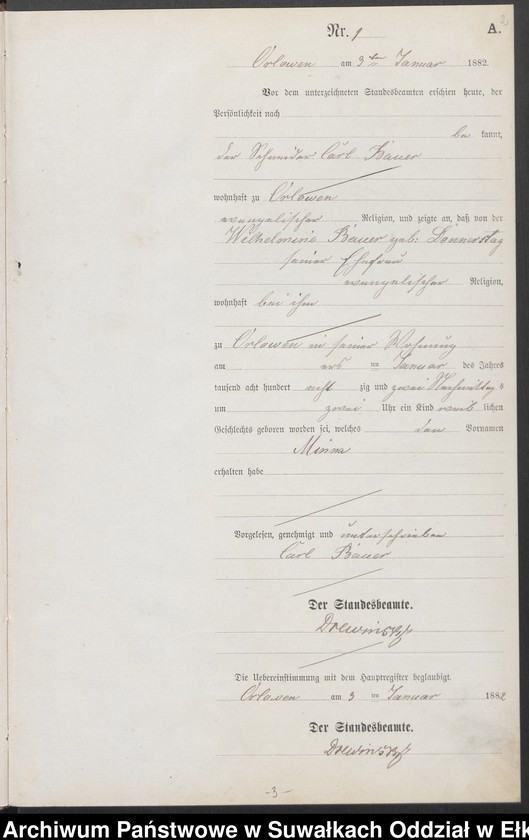 2
Nr. 1 A.
Orlowen am 3ten Januar 1882.
Vor dem unterzeichneten Standesbeamten erschien heute, der
Persönlichkeit nach
be kannt,
der Schneider Carl Bauer
wohnhaft zu Orlowen
evangelischer Religion, und zeigte an, daß von der
Wilhelmine Bauer geb: Donnerstag
seiner Ehefrau
evangelischer Religion,
wohnhaft bei ihm
zu Orlowen in seiner Wohnung
am ers ten Januar des Jahres
tausend acht hundert acht zig und zwei Nachmittags
um zwei Uhr ein Kind weib lichen
Geschlechts geboren worden sei, welches den Vornamen
Minna
erhalten habe
Vorgelesen, genehmigt und unterschrieben
Carl Bauer
Der Standesbeamte.
Drewinski
Die Uebereinstimmung mit dem Hauptregister beglaubigt.
Orlowen am 3 ten Januar 1882
Der Standesbeamte.
Drewinski
-3-
Archiwum Państwowe w Suwałkach Oddział w Ełk